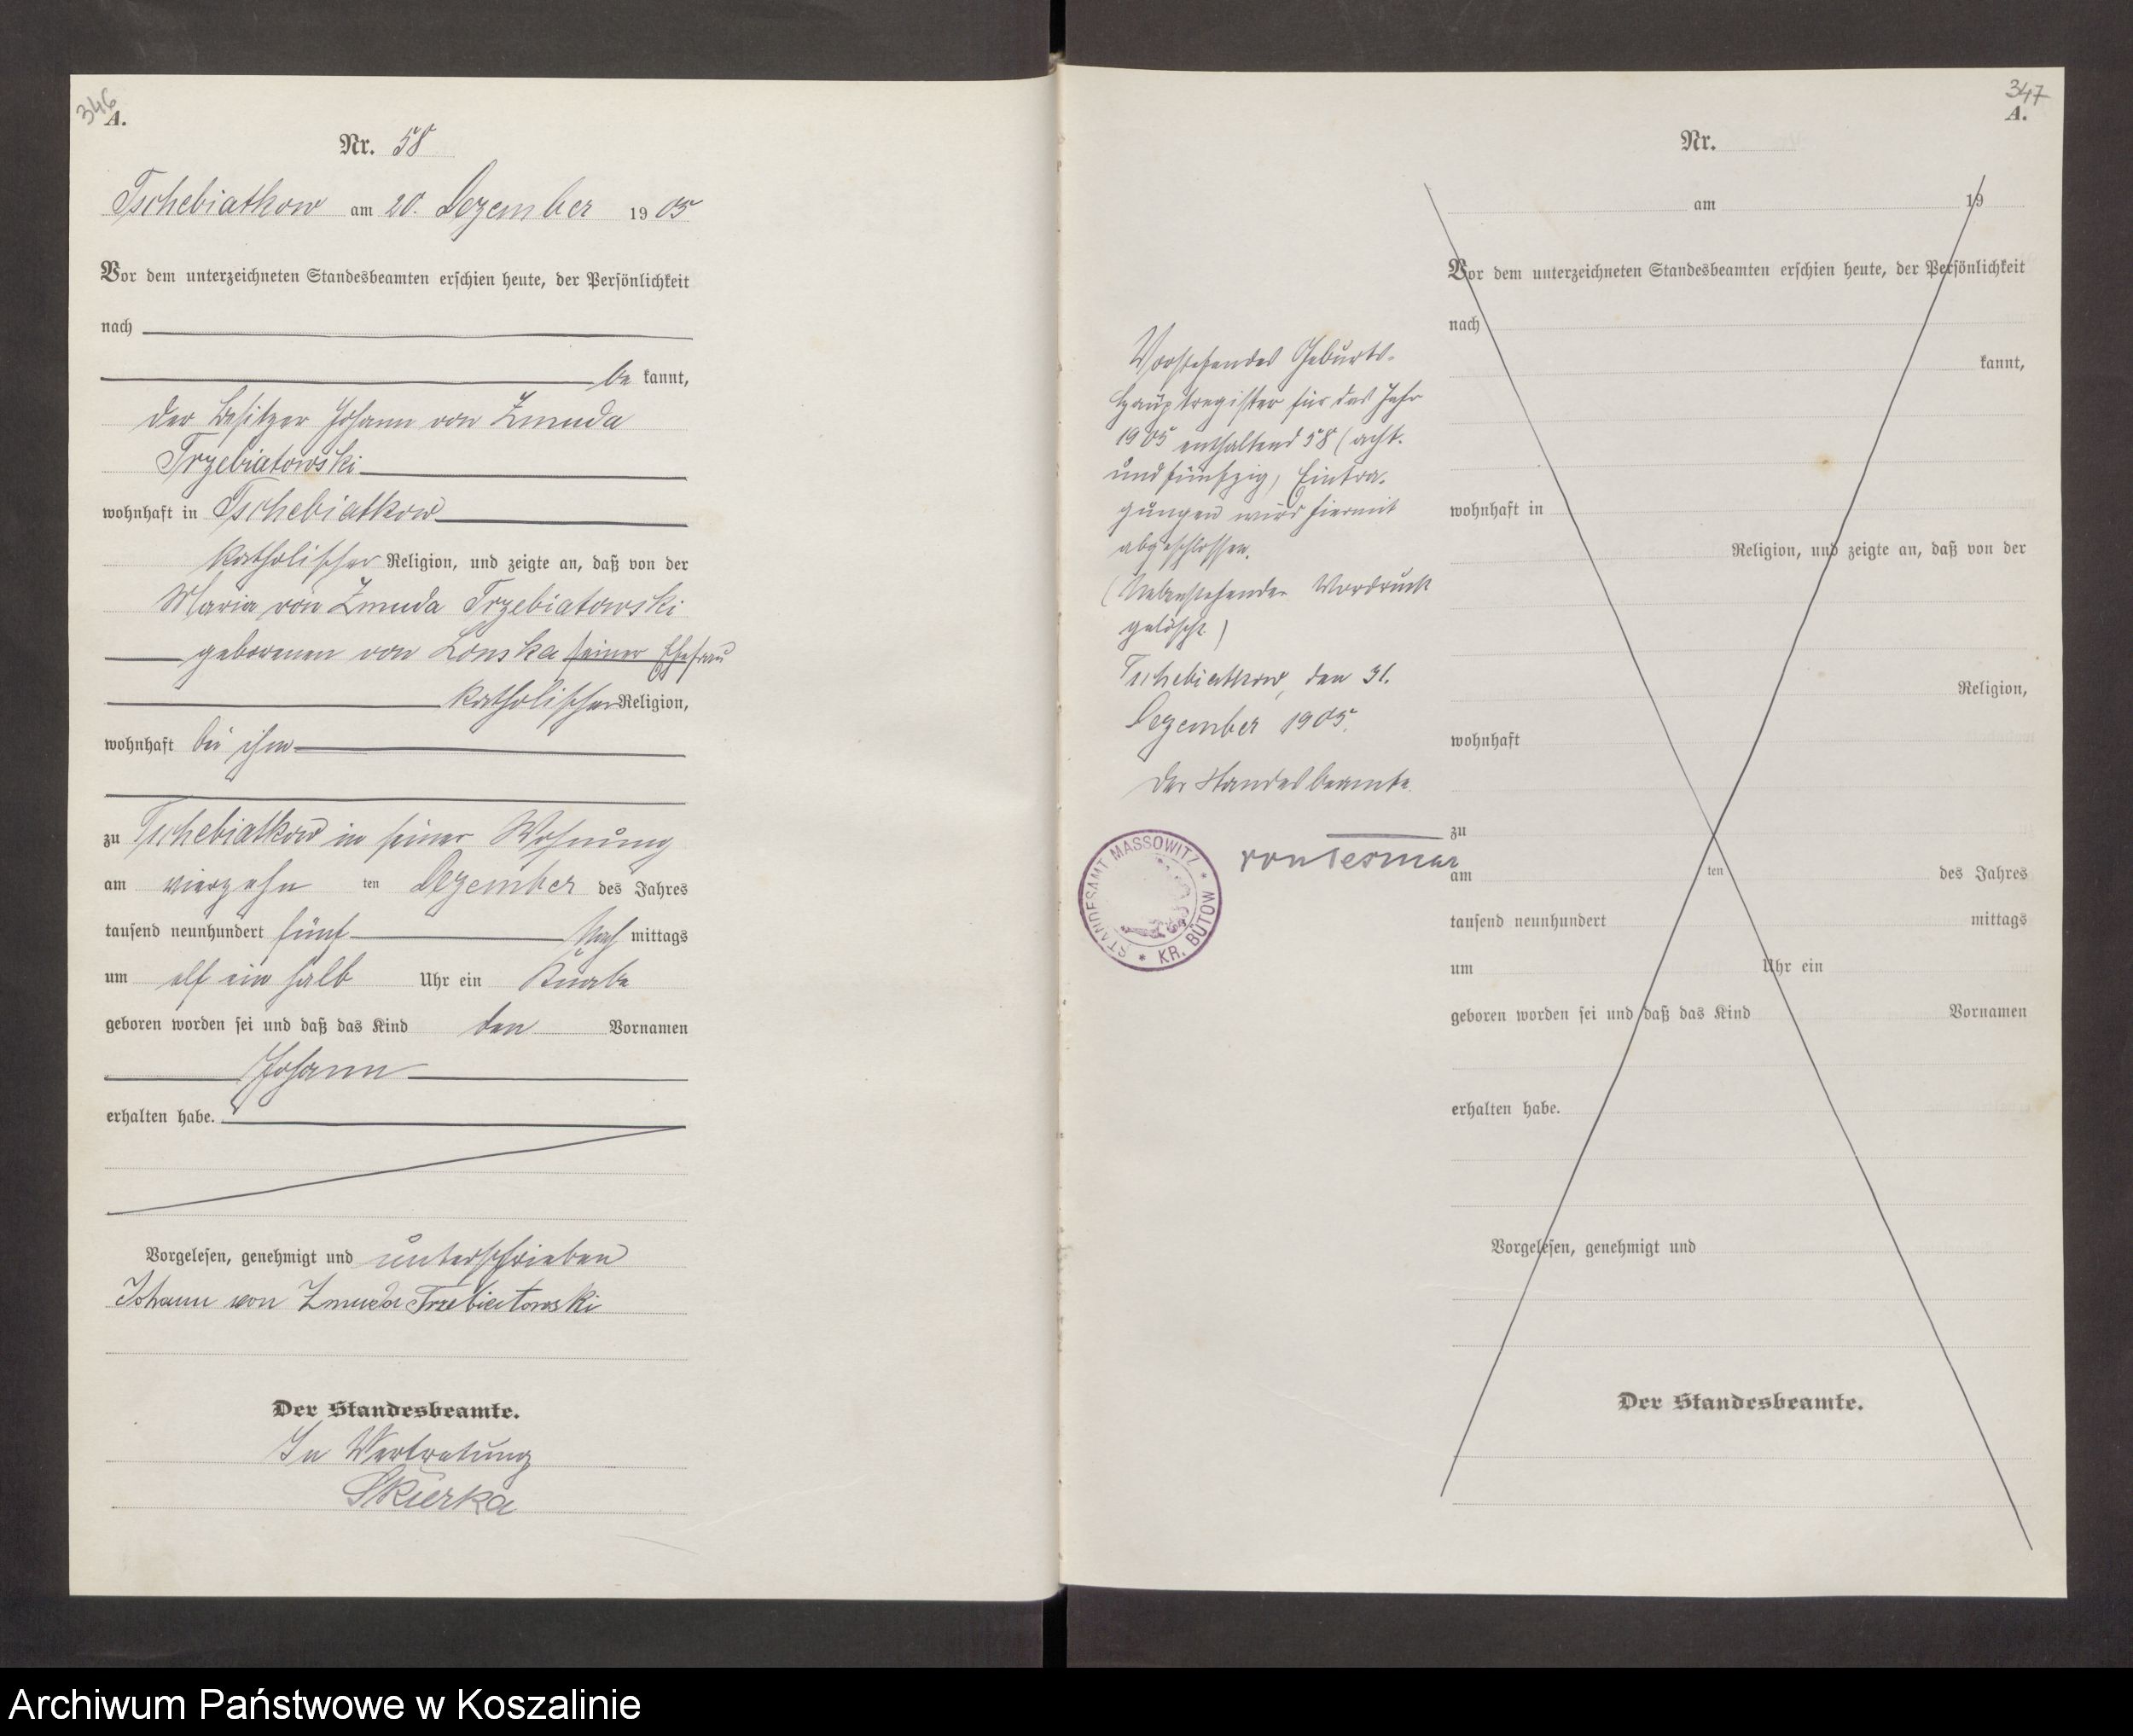 346
A.
Nr. 58
Tschebiatkow am 20. Dezember 1905
Vor dem unterzeichneten Standesbeamten erschien heute, der Persönlichkeit
nach
be kannt,
der Besitzer Johann von Zmuda
Trzebiatowski
wohnhaft in Tschebiatkow
katholischer Religion, und zeigte an, daß von der
Maria von Zmuda Trzebiatowski
geborenen von Lonska seiner Ehefrau
katholischer Religion,
wohnhaft bei ihm
zu Tschebiatkow in seiner Wohnung
am vierzehn ten Dezember des Jahres
tausend neunhundert fünf Nach mittags
um elf ein halb Uhr ein Knabe
geboren worden sei und daß das Kind den Vornamen
Johann
erhalten habe.
Vorgelesen, genehmigt und unterschrieben
Johann von Zmuda Trzebiatowski
Der Standesbeamte.
In Vertretung
Skierka
347
A.
Nr.
am 19
Vor dem unterzeichneten Standesbeamten erschien heute, der Persönlichkeit
nach
kannt,
wohnhaft in
Religion, und zeigte an, daß von der
Religion,
wohnhaft
zu
am ten des Jahres
tausend neunhundert mittags
um Uhr ein
geboren worden sei und daß das Kind Vornamen
erhalten habe.
Vorgelesen, genehmigt und
Der Standesbeamte.
Vorstehendes Geburts-
Hauptregister für das Jahr
1905 enthaltend 58 (acht-
und fünfzig) Eintra-
gungen wird hiermit
abgeschlossen.
(Nebenstehender Vordruck
gelöscht)
Tschebiatkow, den 31.
Dezember 1905.
Der Standesbeamte.
STANDESAMT MASSOWITZ * KR. BÜTOW *
Archiwum Państwowe w Koszalinie